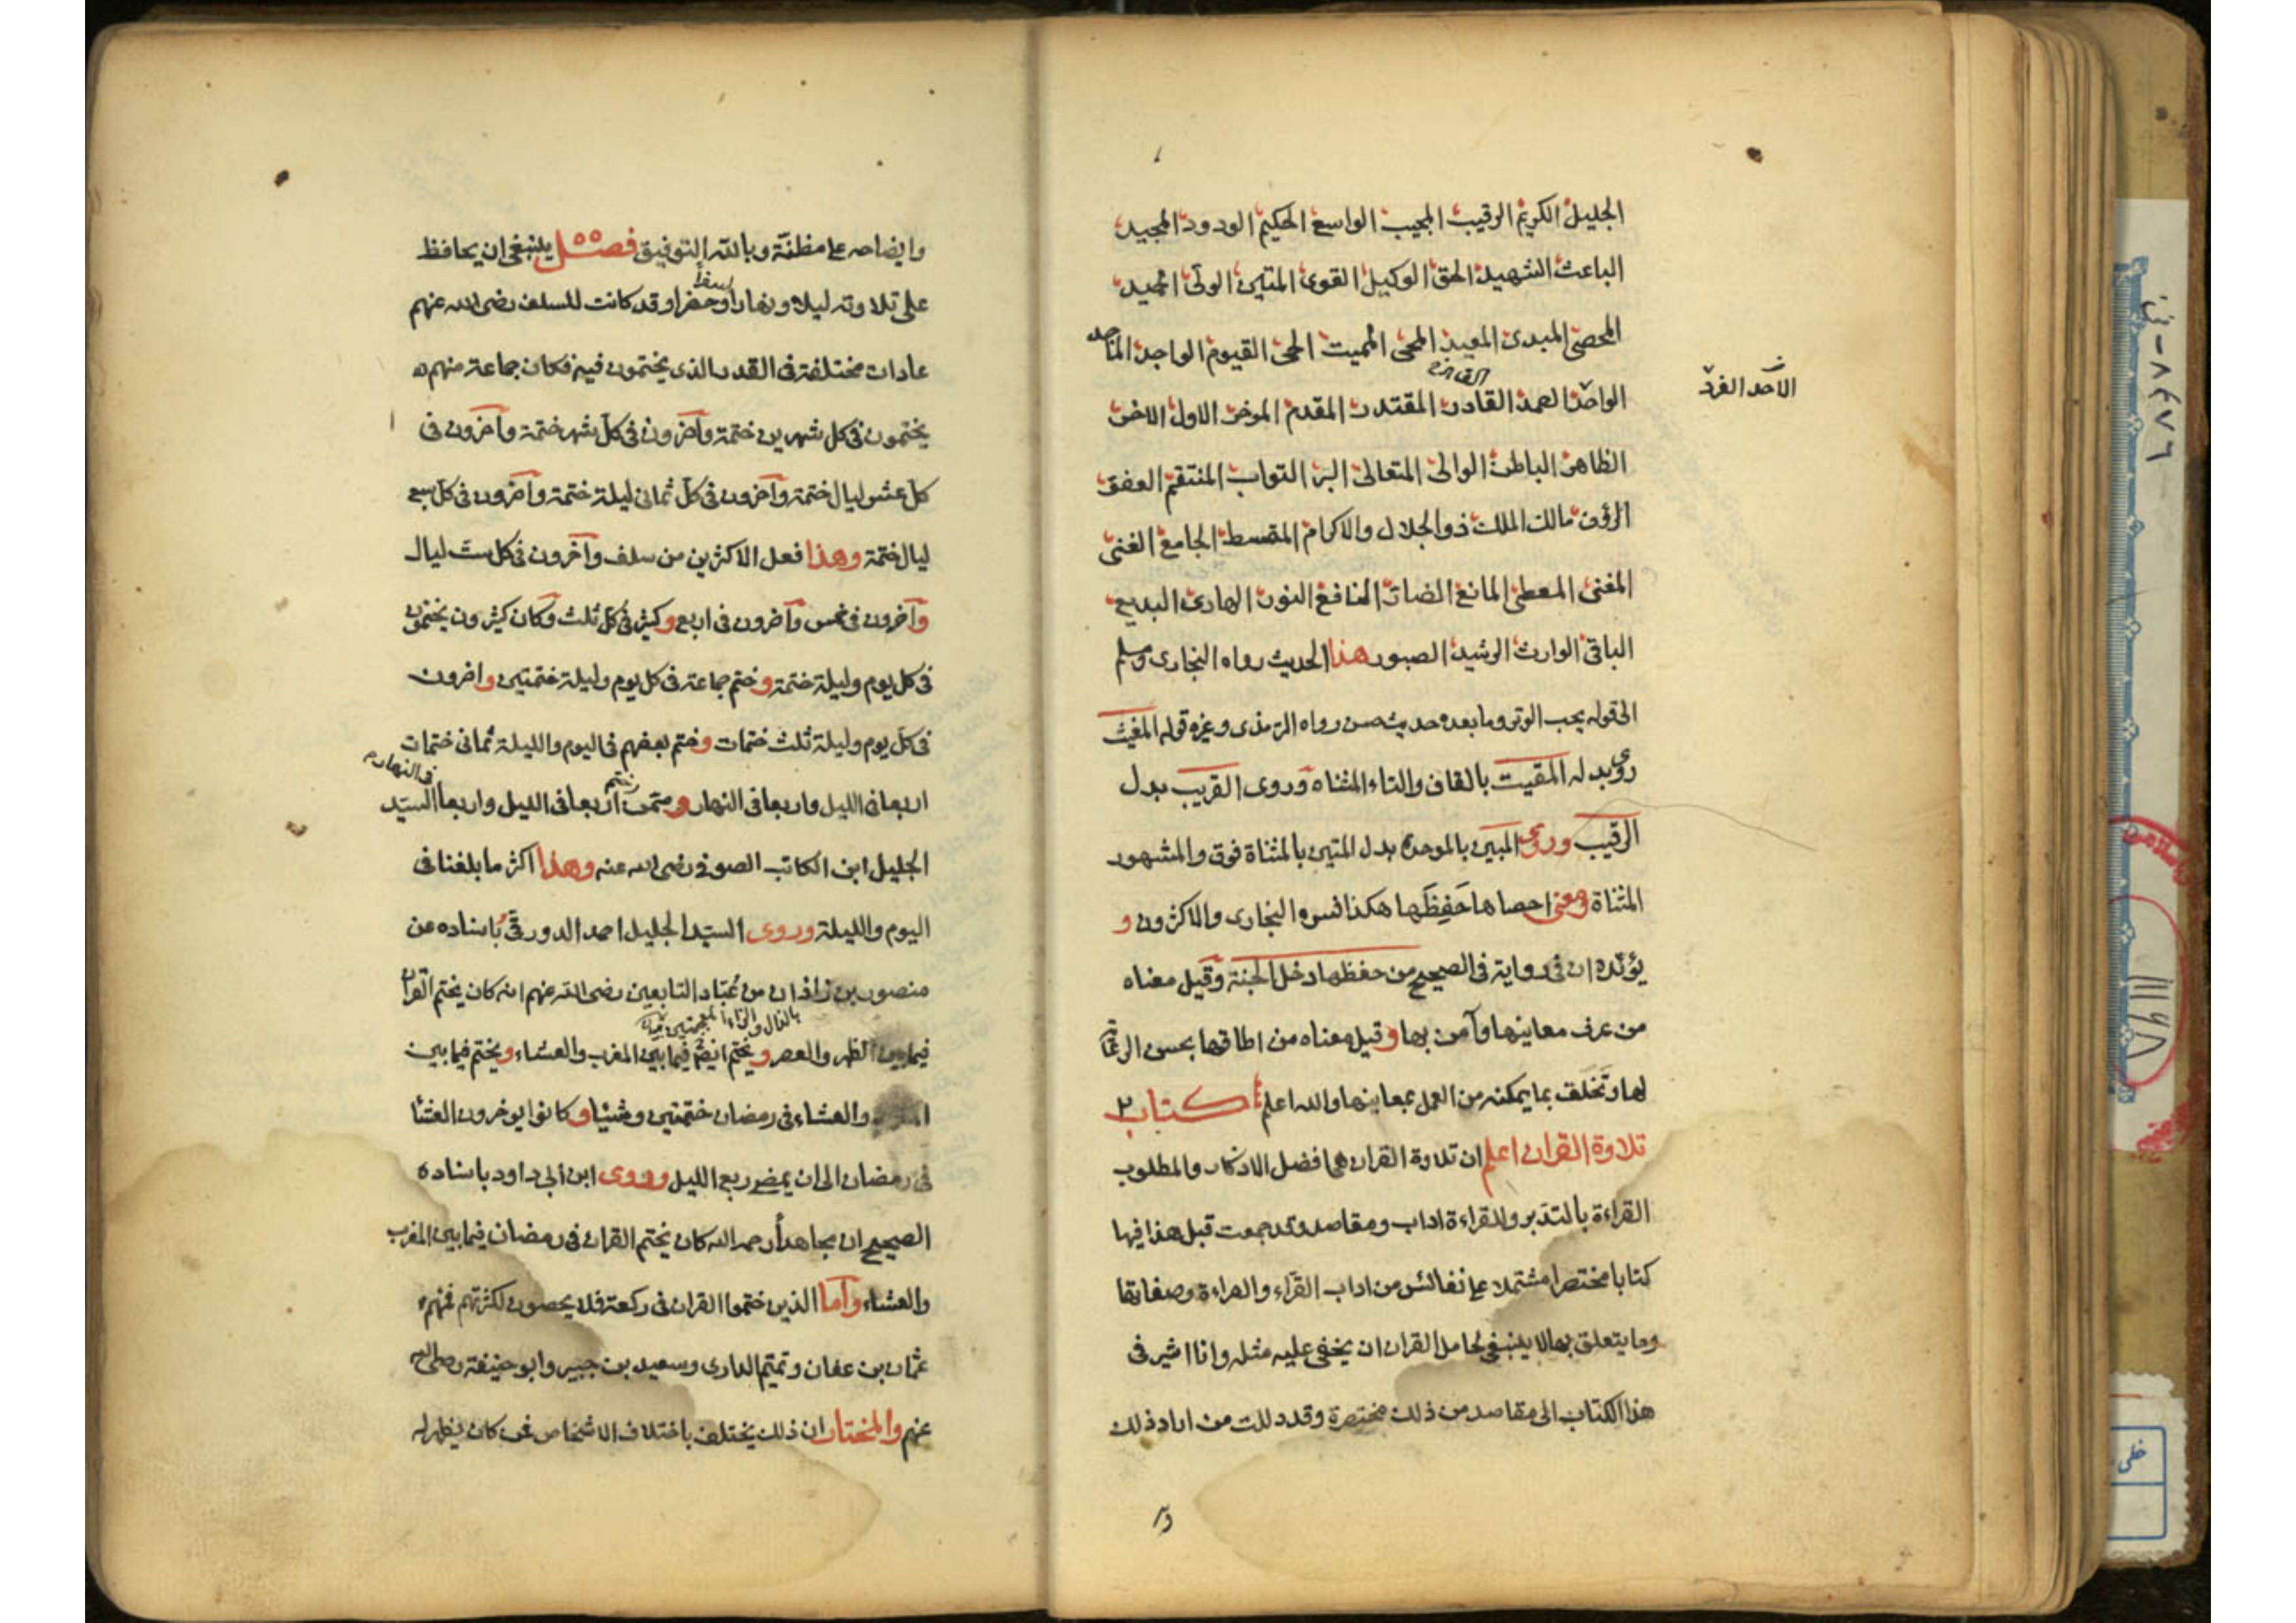 الجليل الكريم الرقيب المجيب الواسع الحكيم الودود المجيد
الباعث الشهيد الحق الوكيل القوى المتين الولى الحميد
المحصى المبدئ المعيد المحيى المميت الحى القيوم الواجد الماجد
الواحد الصمد القادر المقتدر المقدم الموخر الاول الاخر
الاحد الفرد
الظاهر الباطن الوالى المتعالى البر التواب المنتقم العفو
الرؤف مالك الملك ذوالجلال والاكرام المقسط الجامع الغنى
المغنى المعطى المانع الضار النافع النور الهادى البديع
الباقى الوارث الرشيد الصبور هذا الحديث رواه البخارى ومسلم
الى قوله يحب الوتر وما بعده حديث حسن رواه الترمذى وغيره قوله المغيث
روى بدله المقيت بالقاف والتاء المثناه وروى القريب بدل
الرقيب وروى المبين بالموحدة بدل المتين بالمثناة فوق والمشهور
المثناة ومعنى احصاها حَفِظَها هكذا فسره البخارى والاكثرون و
يؤيّده ان فى رواية فى الصحيح من حفظها دخل الجنة وقيل معناه
من عرف معانيها وآمن بها وقيل معناه من اطاقها بحسن الرعاية
لها وتخلق بما يمكنه من العمل بمعانيها والله اعلم كتاب
تلاوة القران اعلم ان تلاوة القران هى افضل الاذكار والمطلوب
القراءة بالتدبر وللقراءة اداب ومقاصد وقد جمعت قبل هذا فيها
كتابا مختصرا مشتملا على نفائس من اداب القرّاء والقراءة وصفاتها
وما يتعلق بها لا ينبغى لحامل القران ان يخفى عليه مثله وانا اشير فى
هذا الكتاب الى مقاصد من ذلك مختصرة وقد دللت من اراد ذلك
وايضاحه على مظنّته وبالله التوفيق فصل ينبغى ان يحافظ
على تلاوته ليلا ونهارا سفرا وحضرا وقد كانت للسلف رضى الله عنهم
عادات مختلفة فى القدر الذى يختمون فيه فكان جماعة منهم
يختمون فى كل شهرين ختمة وآخرون فى كل شهر ختمة وآخرون فى
كل عشر ليال ختمة وآخرون فى كل ثمانى ليلة ختمة وآخرون فى كل سبع
ليال ختمة وهذا فعل الاكثرين من سلف وآخرون فى كل ست ليال
وآخرون فى خمس وآخرون فى اربع وكثير فى كل ثلث وكان كثيرون يختمون
فى كل يوم وليلة ختمة وختم جماعة فى كل يوم وليلة ختمتين واخرون
فى كل يوم وليلة ثلث ختمات وختم بعضهم فى اليوم والليلة ثمانى ختمات
اربعا فى الليل واربعا فى النهار وممن ختم اربعا فى الليل واربعا فى النهار السيّد
الجليل ابن الكاتب الصوفى رضى الله عنه وهذا اكثر ما بلغنا فى
اليوم والليلة وروى السيّد الجليل احمد الدورقى باسناده عن
منصور بن زاذان من عُبّاد التابعين رضى الله عنهم انه كان يختم القران
بالذال والزاء المعجمتين
فيما بين الظهر والعصر ويختم ايضا فيما بين المغرب والعشاء ويختم فيما بين
والعشاء فى رمضان ختمتين وشيئا وكانوا يوخرون العشا
فى رمضان الى ان يمضى ربع الليل وروى ابن ابى داود باسناده
الصحيح ان مجاهدا رحمه الله كان يختم القران فى رمضان فيما بين المغرب
والعشاء وآما الذين ختموا القران فى ركعة فلا يحصون لكثرتهم فمنهم
عثمان بن عفان وتميم الدارى وسعيد بن جبير وابو حنيفة رضى الله
عنهم والمختار ان ذلك يختلف باختلاف الاشخاص فمن كان يظهر له
خطى